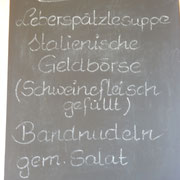 Leberspätzlesuppe
Italienische
Geldbörse
(Schweinefleisch
gefüllt)
Bandnudeln
gem. Salat